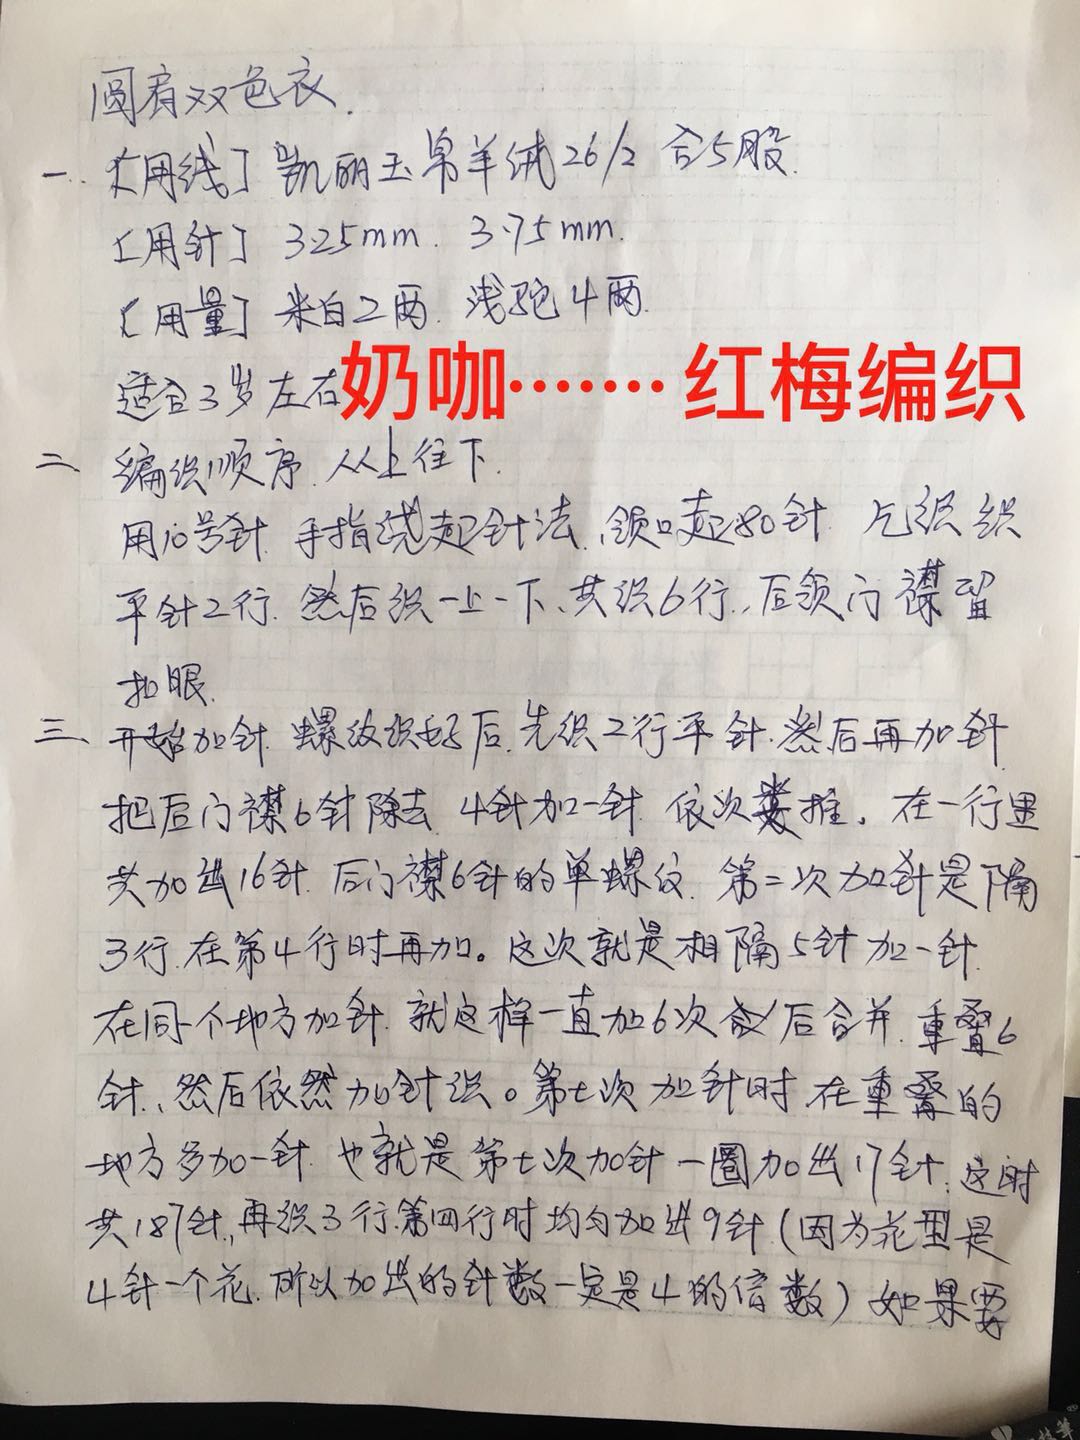 圆肩双色衣.
一.【用线】凯丽玉帛羊绒26/2 合5股.
【用针】3.25mm. 3.75mm.
【用量】米白2两. 浅驼4两.
适合3岁左右 奶咖……. 红梅编织
二、编织顺序.从上往下.
用10号针.手指绕起针法.领口起80针. 织
平针2行.然后织一上一下、共织6行.,后领门襟留
扣眼.
三、开始加针.螺纹织好后.先织2行平针.然后再加针.
把后门襟6针除去.4针加一针.依次类推.在一行里
共加出16针.后门襟6针的单螺纹.第二次加针是隔
3行.在第4行时再加。这次就是相隔5针加一针.
在同个地方加针.就这样一直加6次后合并.重叠6
针.,然后依然加针织。第七次加针时.在重叠的
地方多加一针.也就是第七次加针一圈加出17针.这时
共187针,再织3行.第四行时均匀加出9针.(因为花型是
4针一个花.所以加出的针数一定是4的倍数)如果要